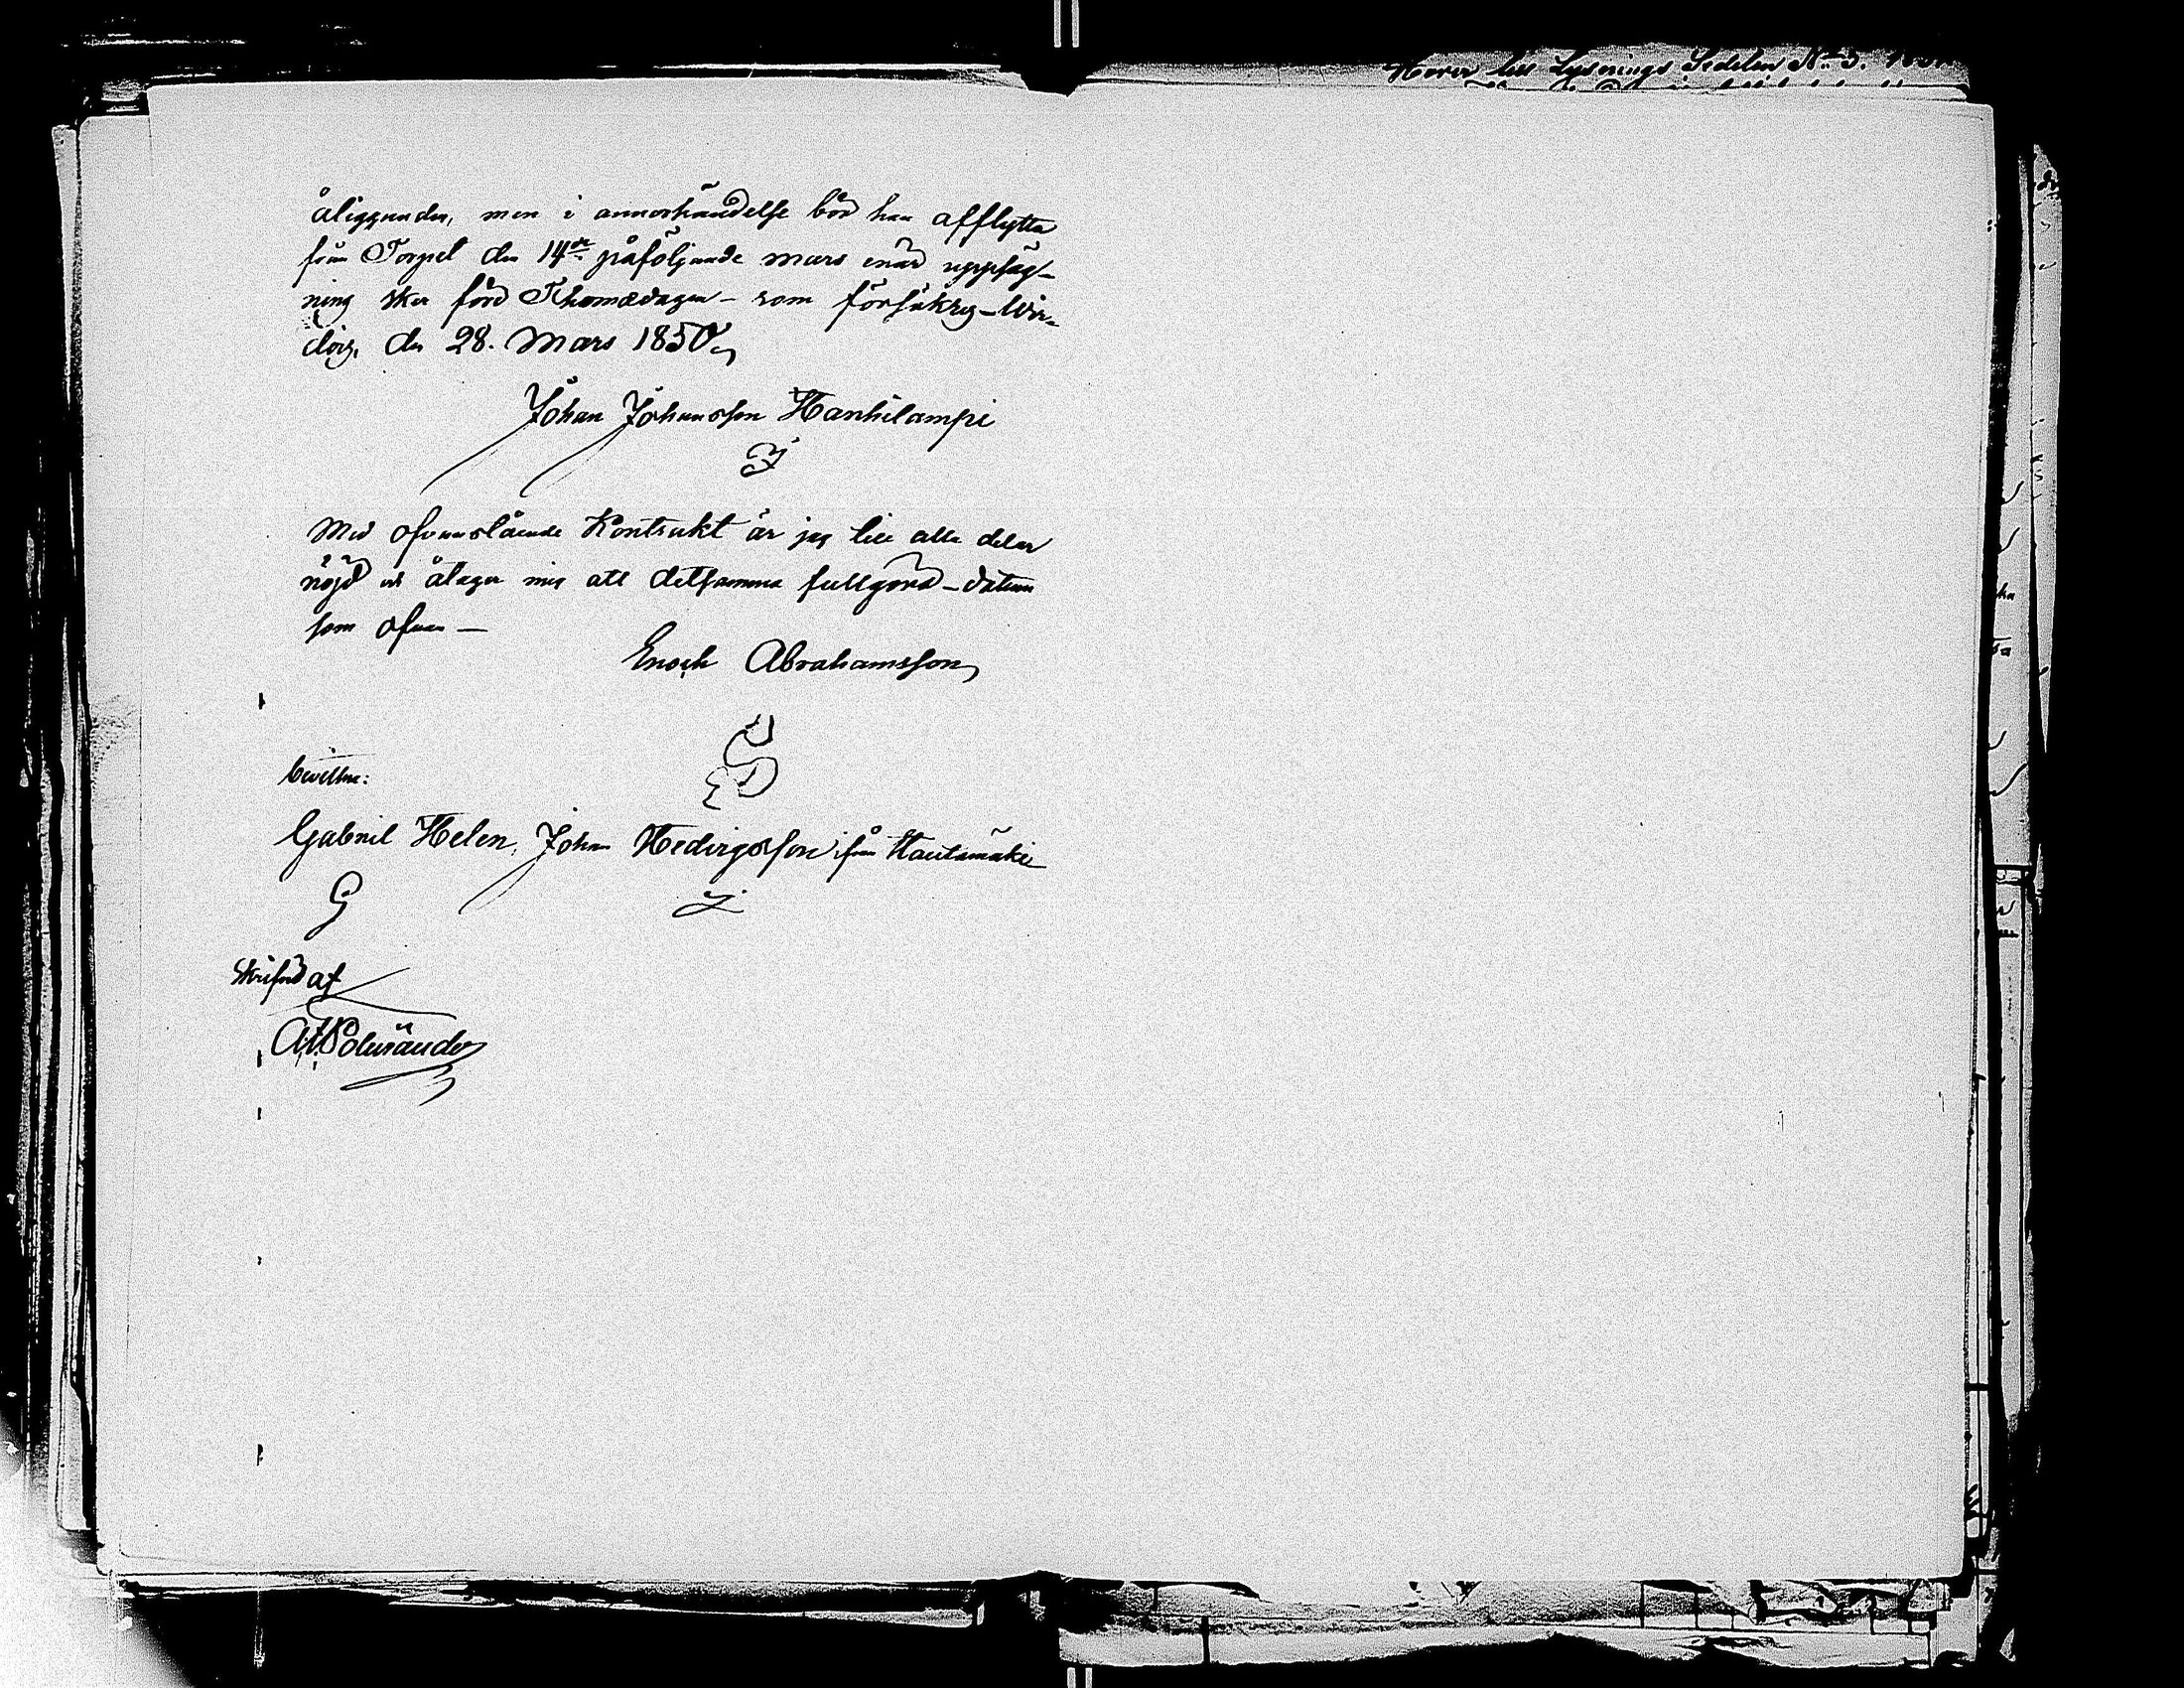 åligganden, men i annorhändelse bör han afflytta
från Torpet den 14de påföljande mars enär uppsäg-
ning sker före Thomædagen – som försäkrg – Wir-
dois, den 28. Mars 1850
Johan Johansson Hanhilampi
J
Med ofvanstående Kontrakt är jag till alla delar
nöjd och ålager mig att detsamma fullgöra – datum
som ofvan –
Enoch Abrahamsson
bevittna:
Gabriel Helen, Johan Hedvigsson ifrån Hautamäki
G J
Skrifvet af
Lysnings Sedelen No 3.